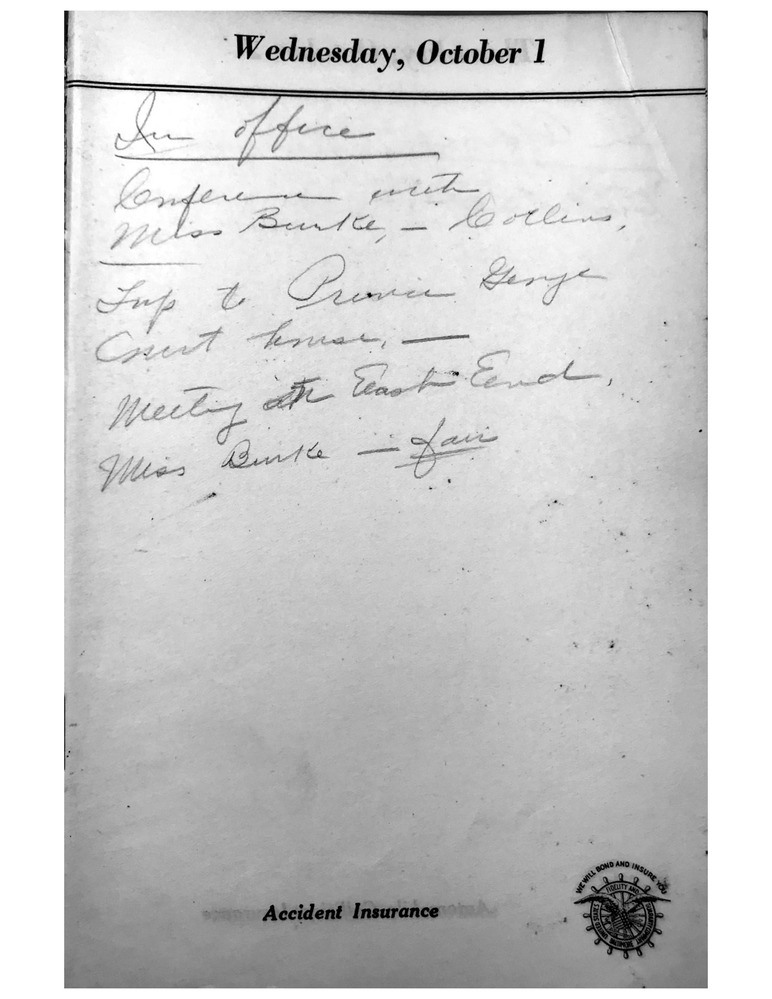 Wednesday, October 1
In office
Conference with
Miss Burke, – Collins,
Trip to Prince George
Court house, —
Meeting at East End,
Miss Burke – fair
Accident Insurance
WE WILL BOND AND INSURE YOU
UNITED STATES FIDELITY AND GUARANTY COMPANY